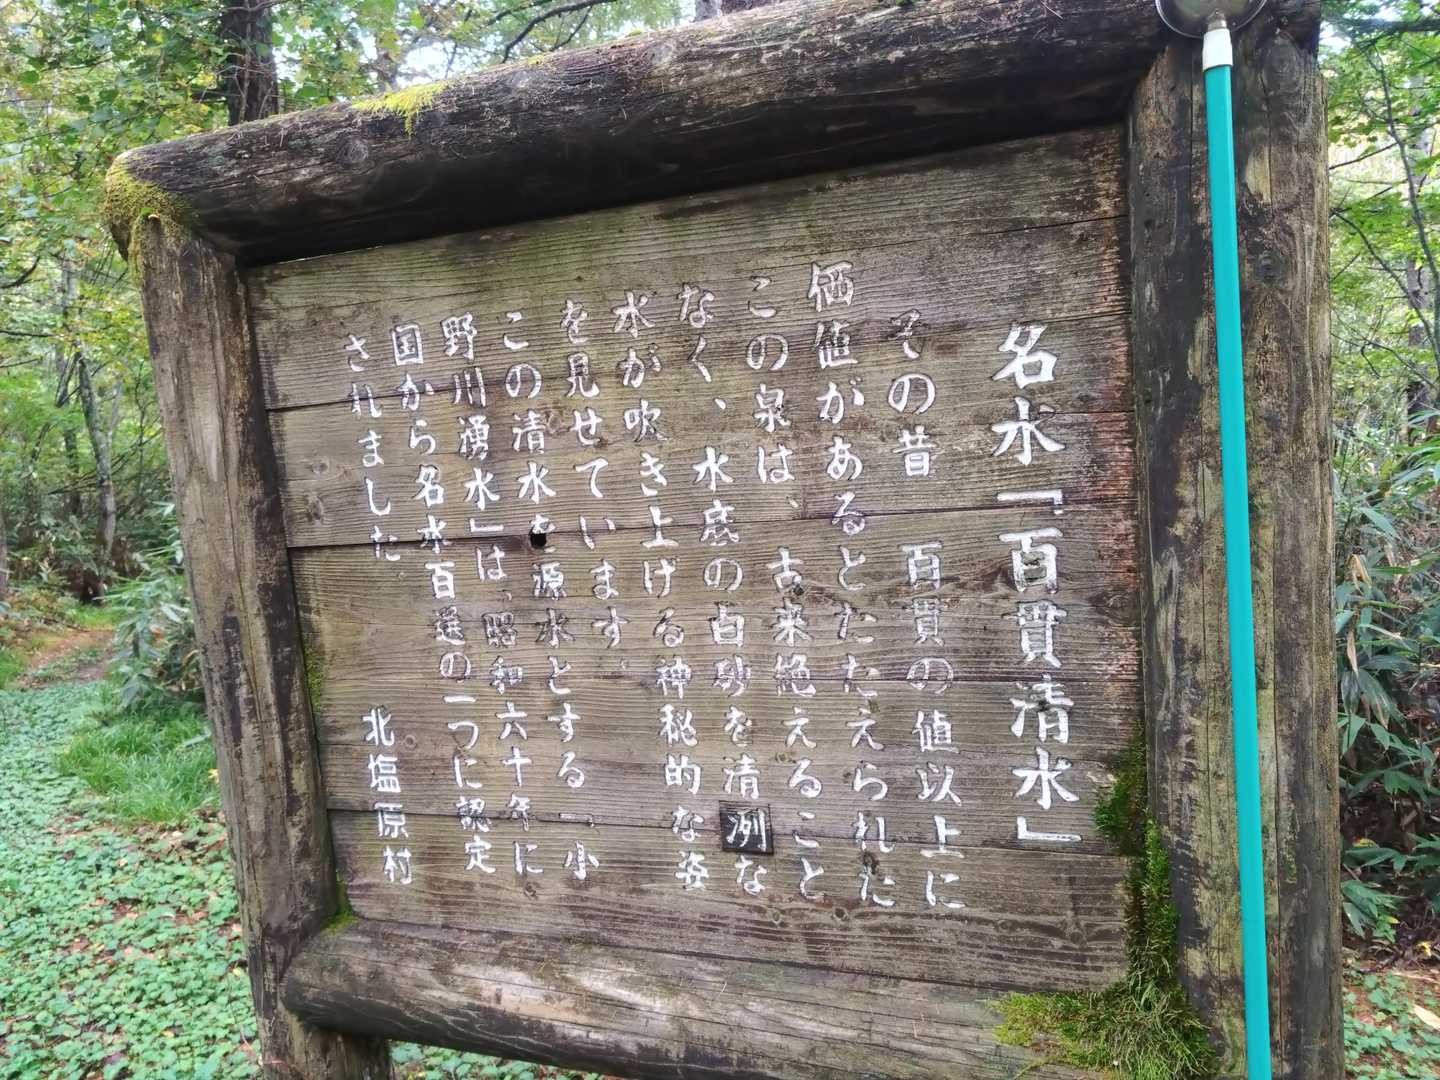 名水「百貫清水」
その昔　百貫の値以上に
価値があるとたたえられた
この泉は、古来絶えること
なく、水底の白砂を清洌な
水が吹き上げる神秘的な姿
を見せています。
この清水を源水とする「小
野川湧水」は、昭和六十年に
国から名水百選の一つに認定
されました。
北塩原村